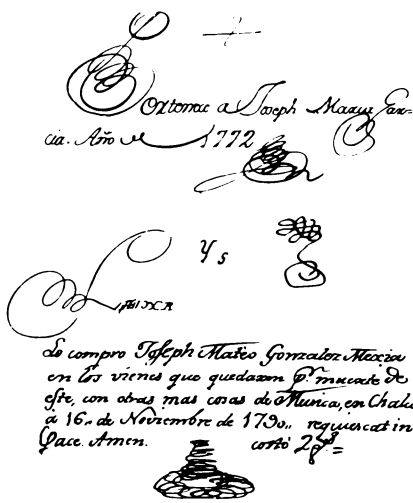 Pertenece a Joseph Maria Gar-
cia. Año de 1772
Y s
Lo compro Joseph Mateo Gonzalez Mexia
en los vienes que quedaron pr. muerte de
este, con otras mas cosas de Musica, en Chalco
à 16,, de Noviembre de 1790,, requiescat in
Pace. Amen. costó 2 ps =